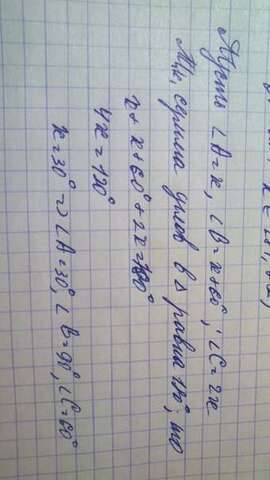 Пусть ∠A=x, ∠B=x+60°, ∠C=2x
Т.к. сумма углов в Δ равна 180°, то
x+x+60°+2x=180°
4x=120°
x=30° => ∠A=30°, ∠B=90°, ∠C=60°